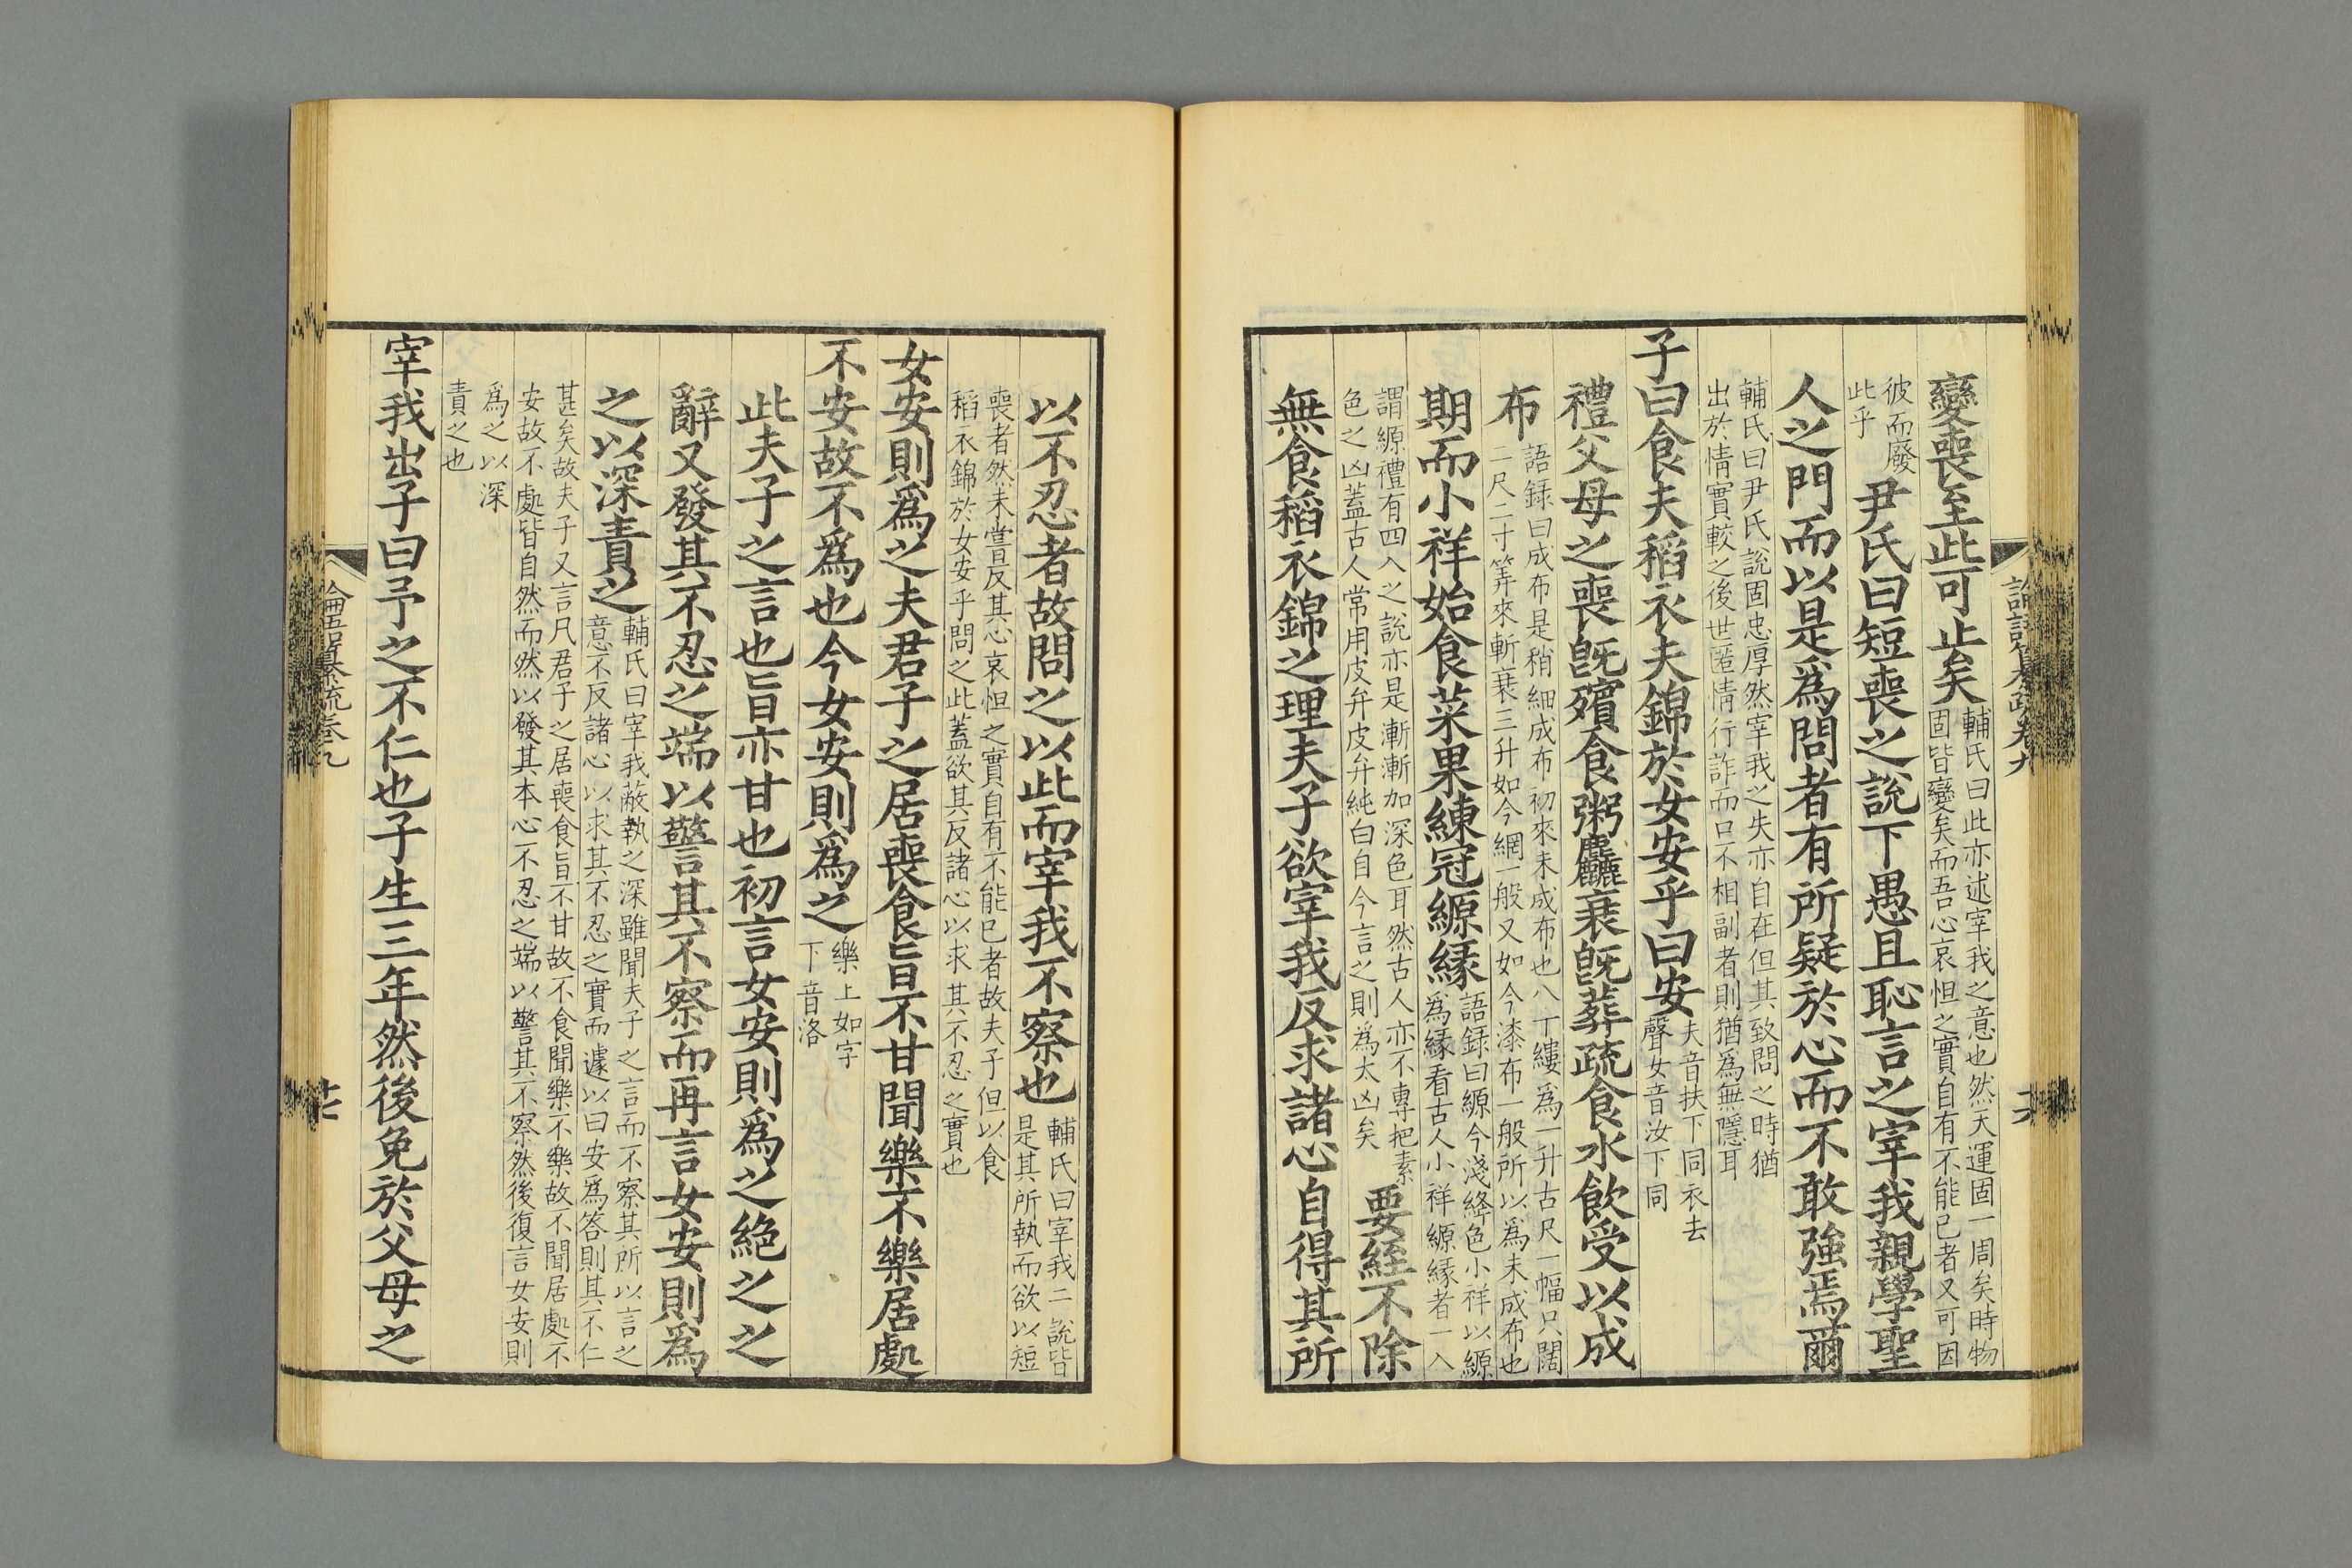 變喪至此可止矣輔氏曰此亦述宰我之意也然天運固一周矣時物
固皆變矣而吾心哀怛之實自有不能已者又可因
彼而廢
此乎
尹氏曰短喪之說下愚且恥言之宰我親學聖
人之門而以是爲問者有所疑於心而不敢強焉爾
輔氏曰尹氏說固忠厚然宰我之失亦自在但其致問之時猶
出於情實較之後世匿情行詐而口不相副者則猶爲無隱耳
子曰食夫稻衣夫錦於女安乎曰安夫音扶下同衣去
聲女音汝下同
禮父母之喪旣殯食粥麤衰旣葬疏食水飲受以成
布語録曰成布是稍細成布初來未成布也八丁縷爲一升古尺一幅只闊
二尺二寸筭來斬衰三升如今網一般又如今漆布一般所以爲未成布也
期而小祥始食菜果練冠縓緣語録曰縓今淺絳色小祥以縓
爲緣看古人小祥縓緣者一入
謂縓禮有四入之說亦是漸漸加深色耳然古人亦不專把素
色之凶蓋古人常用皮弁皮弁純白自今言之則爲太凶矣
要絰不除
無食稻衣錦之理夫子欲宰我反求諸心自得其所
論語纂疏卷九
以不忍者故問之以此而宰我不察也輔氏曰宰我二說皆
是其所執而欲以短
喪者然未嘗反其心哀怛之實自有不能已者故夫子但以食
稻衣錦於女安乎問之此蓋欲其反諸心以求其不忍之實也
女安則爲之夫君子之居喪食旨不甘聞樂不樂居處
不安故不爲也今女安則爲之樂上如字
下音洛
此夫子之言也旨亦甘也初言女安則爲之絶之之
辭又發其不忍之端以警其不察而再言女安則爲
之以深責之輔氏曰宰我蔽執之深雖聞夫子之言而不察其所以言之
意不反諸心以求其不忍之實而遽以曰安爲答則其不仁
甚矣故夫子又言凡君子之居喪食旨不甘故不食聞樂不樂故不聞居處不
安故不處皆自然而然以發其本心不忍之端以警其不察然後復言女安則
爲之以深
責之也
宰我出子曰予之不仁也子生三年然後免於父母之
論語纂疏卷九